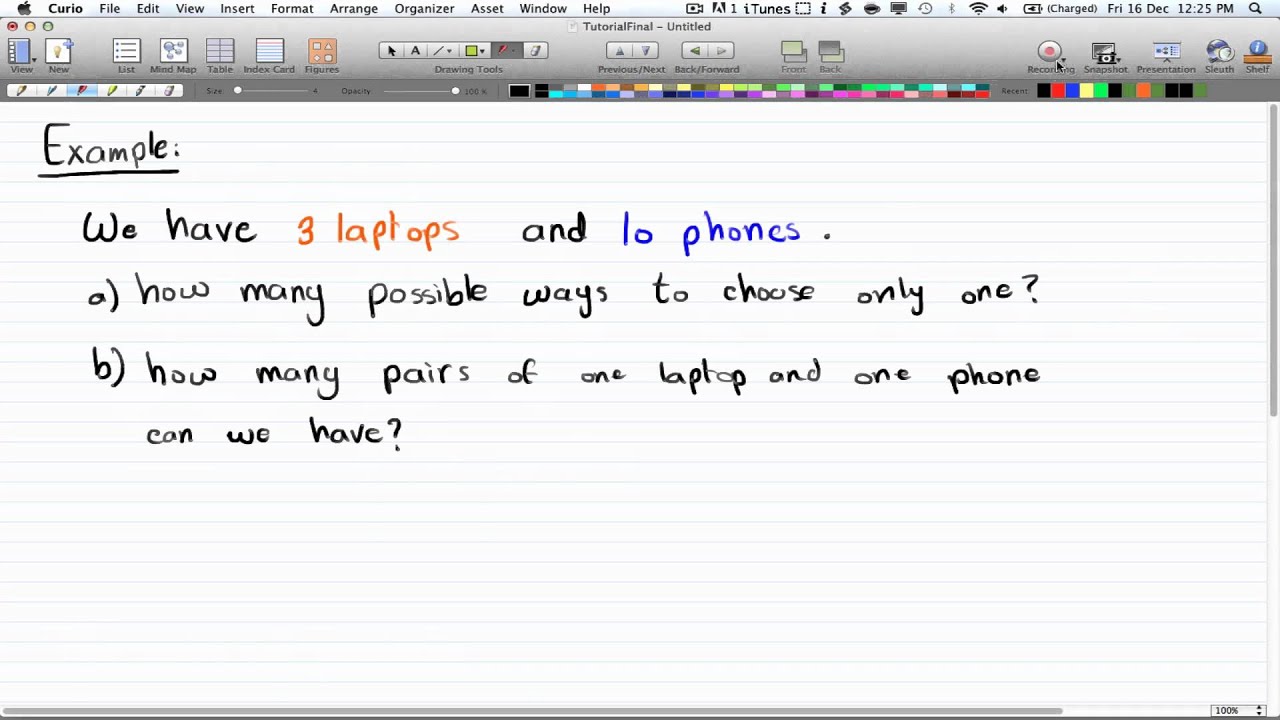 Curio File Edit View Insert Format Arrange Organizer Asset Window Help 1 iTunes (Charged) Fri 16 Dec 12:25 PM
TutorialFinal – Untitled
View New List Mind Map Table Index Card Figures Drawing Tools Previous/Next Back/Forward Front Back Recording Snapshot Presentation Sleuth Shelf
Size: 4 Opacity: 100 % Recent:
Example:
We have 3 laptops and 10 phones.
a) how many possible ways to choose only one?
b) how many pairs of one laptop and one phone
can we have?
100%